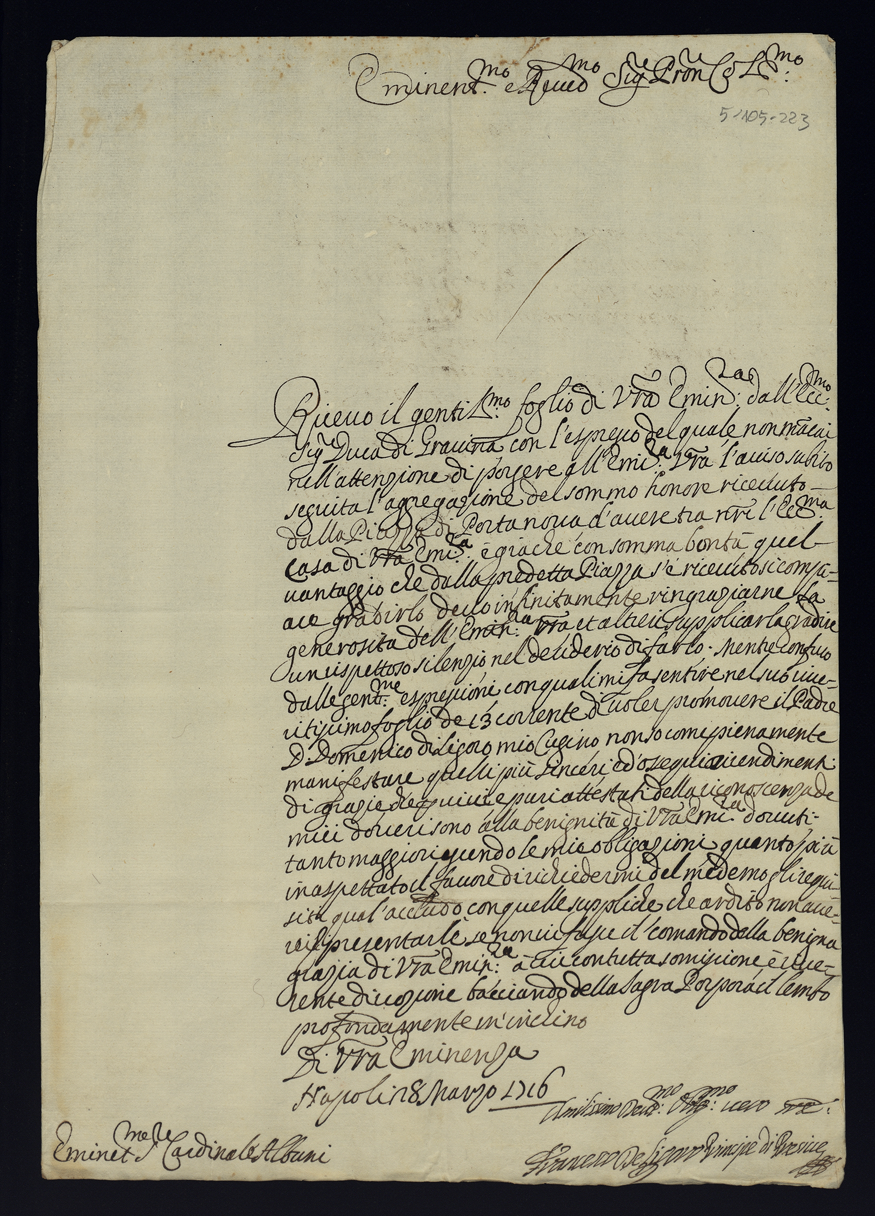 Eminent.mo e Reue.do Sig.re Pron Col.mo
5-105-223
Riceuo il gentil.mo foglio di Vra Emin.za dall'Ecc.mo
Sig.r Duca di Grauina con l'espresso del quale non mãcai
nell'attenzione di porgere all'Emi.za Vra l'auiso subito
seguita l'aggregazione del sommo honore riceuuto
dalla Piazza di Portanoua d'auere tra nri l'Ecc.ma
Casa di Vra Emi.za e giache con somma bontà quel
uantaggio che dalla predetta Piazza s'è riceuuto si compi-
ace gradirlo deuo infinitamente ringraziarne la
generosità dell'Emin.za Vra et altresi supplicarla gradire
un rispettoso silenzio nel desiderio di farlo. Mentre confuso
dalle gent.me espressioni con quali mi fa sentire nel suo riue-
ritissimo foglio de 13 corrente d'uoler promouere il Padre
D. Domenico di Ligoro mio Cugino non so come pienamente
manifestare quelli più sinceri ed'ossequiosi rendimenti
di grazie che quiui e puri attestati della riconoscenza de
miei doueri sono alla benignità di Vra Emi.za douuti
tanto maggiori essendo le mie obligazioni quanto più
inaspettato il fauore di richiedermi del medemo gli requi-
siti qual'accludo con quelle suppliche che ardito non aue-
rei presentarle se non ui fusse il comando della benigna
grazia di Vra Emin.za à cui con tutta somissione è riue-
rente diuozione bacciando della Sagra Porpora il lembo
profondamente m'inchino
Di Vra Eminenza
Napoli 28 Marzo 1716
Umilissimo Deuo.mo Oblig.mo seruo vro
Eminet.mo Sr. Cardinale Albani
Francesco De Ligoro Principe di Presicce